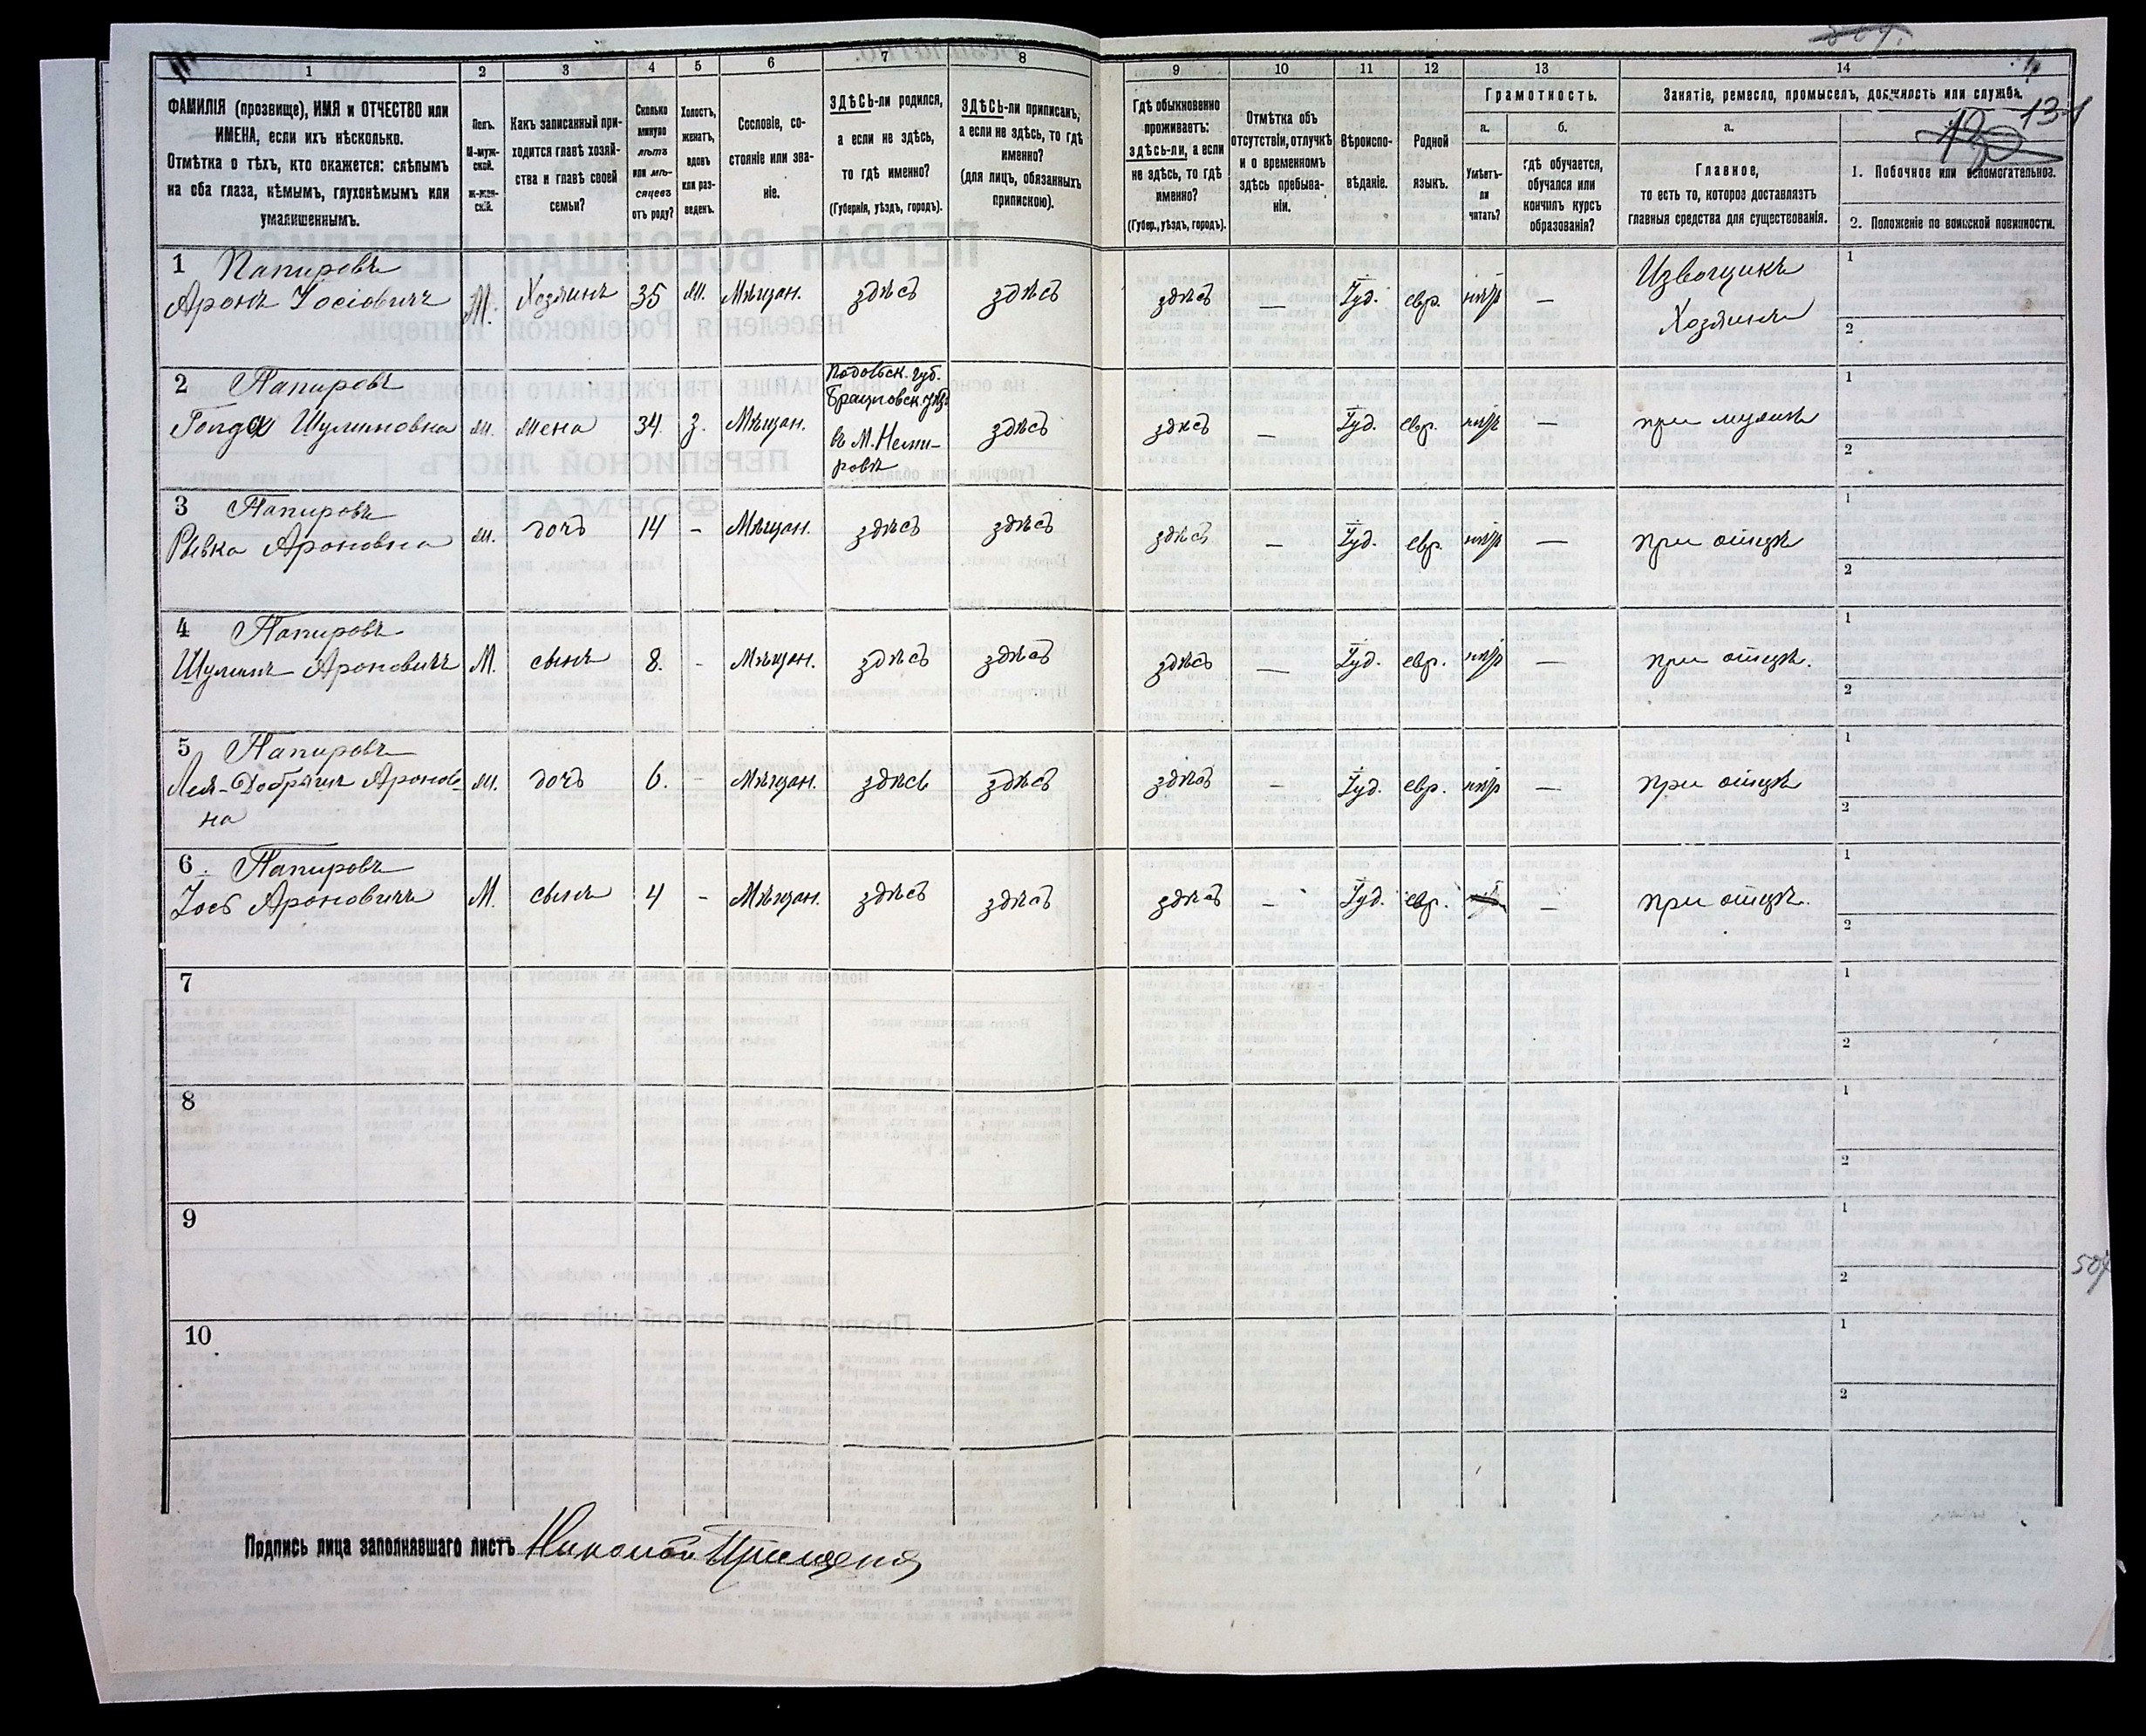 1 2 3 4 5 6 7 8 9 10 11 12 13 14
ФАМИЛІЯ (прозвище), ИМЯ и ОТЧЕСТВО или
ИМЕНА, если ихъ нѣсколько.
Отмѣтка о тѣхъ, кто окажется: слѣпымъ
на оба глаза, нѣмымъ, глухонѣмымъ или
умалишеннымъ.
Полъ.
М-муж-
ской.
Ж-жен-
скій.
Какъ записанный при-
ходится главѣ хозяй-
ства и главѣ своей
семьи?
Сколько
минуло
лѣтъ
или мѣ-
сяцевъ
отъ роду?
Холостъ,
женатъ,
вдовъ
или раз-
веденъ.
Сословіе, со-
стояніе или зва-
ніе.
ЗДѢСЬ-ли родился,
а если не здѣсь,
то гдѣ именно?
(Губернія, уѣздъ, городъ).
ЗДѢСЬ-ли приписанъ,
а если не здѣсь, то гдѣ
именно?
(для лицъ, обязанныхъ
припискою).
Гдѣ обыкновенно
проживаетъ:
здѣсь-ли, а если
не здѣсь, то гдѣ
именно?
(Губер., уѣздъ, городъ).
Отмѣтка объ
отсутствіи, отлучкѣ
и о временномъ
здѣсь пребыва-
ніи.
Вѣроиспо-
вѣданіе.
Родной
языкъ.
Грамотность.
а.
Умѣетъ-
ли
читать?
б.
гдѣ обучается,
обучался или
кончилъ курсъ
образованія?
Занятіе, ремесло, промыселъ, должность или служба.
131
а.
Главное,
то есть то, которое доставляетъ
главныя средства для существованія.
1. Побочное или вспомогательное.
2. Положеніе по воинской повинности.
1 Папировъ
Аронъ Іосіовичъ М. Хозяинъ 35 ж. Мѣщан. здѣсь здѣсь здѣсь — Іуд. евр. нѣтъ — Извощикъ
Хозяинъ
1
2
2 Папировъ
Голда Шулимовна ж. жена 34 з. Мѣщан. Подольск. губ.
Брацловск. уѣз.
въ М. Неми-
ровѣ
здѣсь здѣсь — Іуд. евр. нѣтъ — при мужѣ
1
2
3 Папировъ
Рывка Ароновна ж. дочь 14 - Мѣщан. здѣсь здѣсь здѣсь — Іуд. евр. нѣтъ — при отцѣ
1
2
4 Папировъ
Шулимъ Ароновичъ М. сынъ 8. - Мѣщан. здѣсь здѣсь здѣсь — Іуд. евр. нѣтъ — при отцѣ.
1
2
5 Папировъ
Лея-Добрыш Аронов-
на
ж. дочь 6. - Мѣщан. здѣсь здѣсь здѣсь — Іуд. евр. нѣтъ — при отцѣ
1
2
6. Папировъ
Іось Ароновичъ М. сынъ 4 - Мѣщан. здѣсь здѣсь здѣсь — Іуд. евр. — при отцѣ.
1
2
7
1
2
8
1
2
9
1
2
10
1
2
Подпись лица заполнявшаго листъ Николай Прищепа